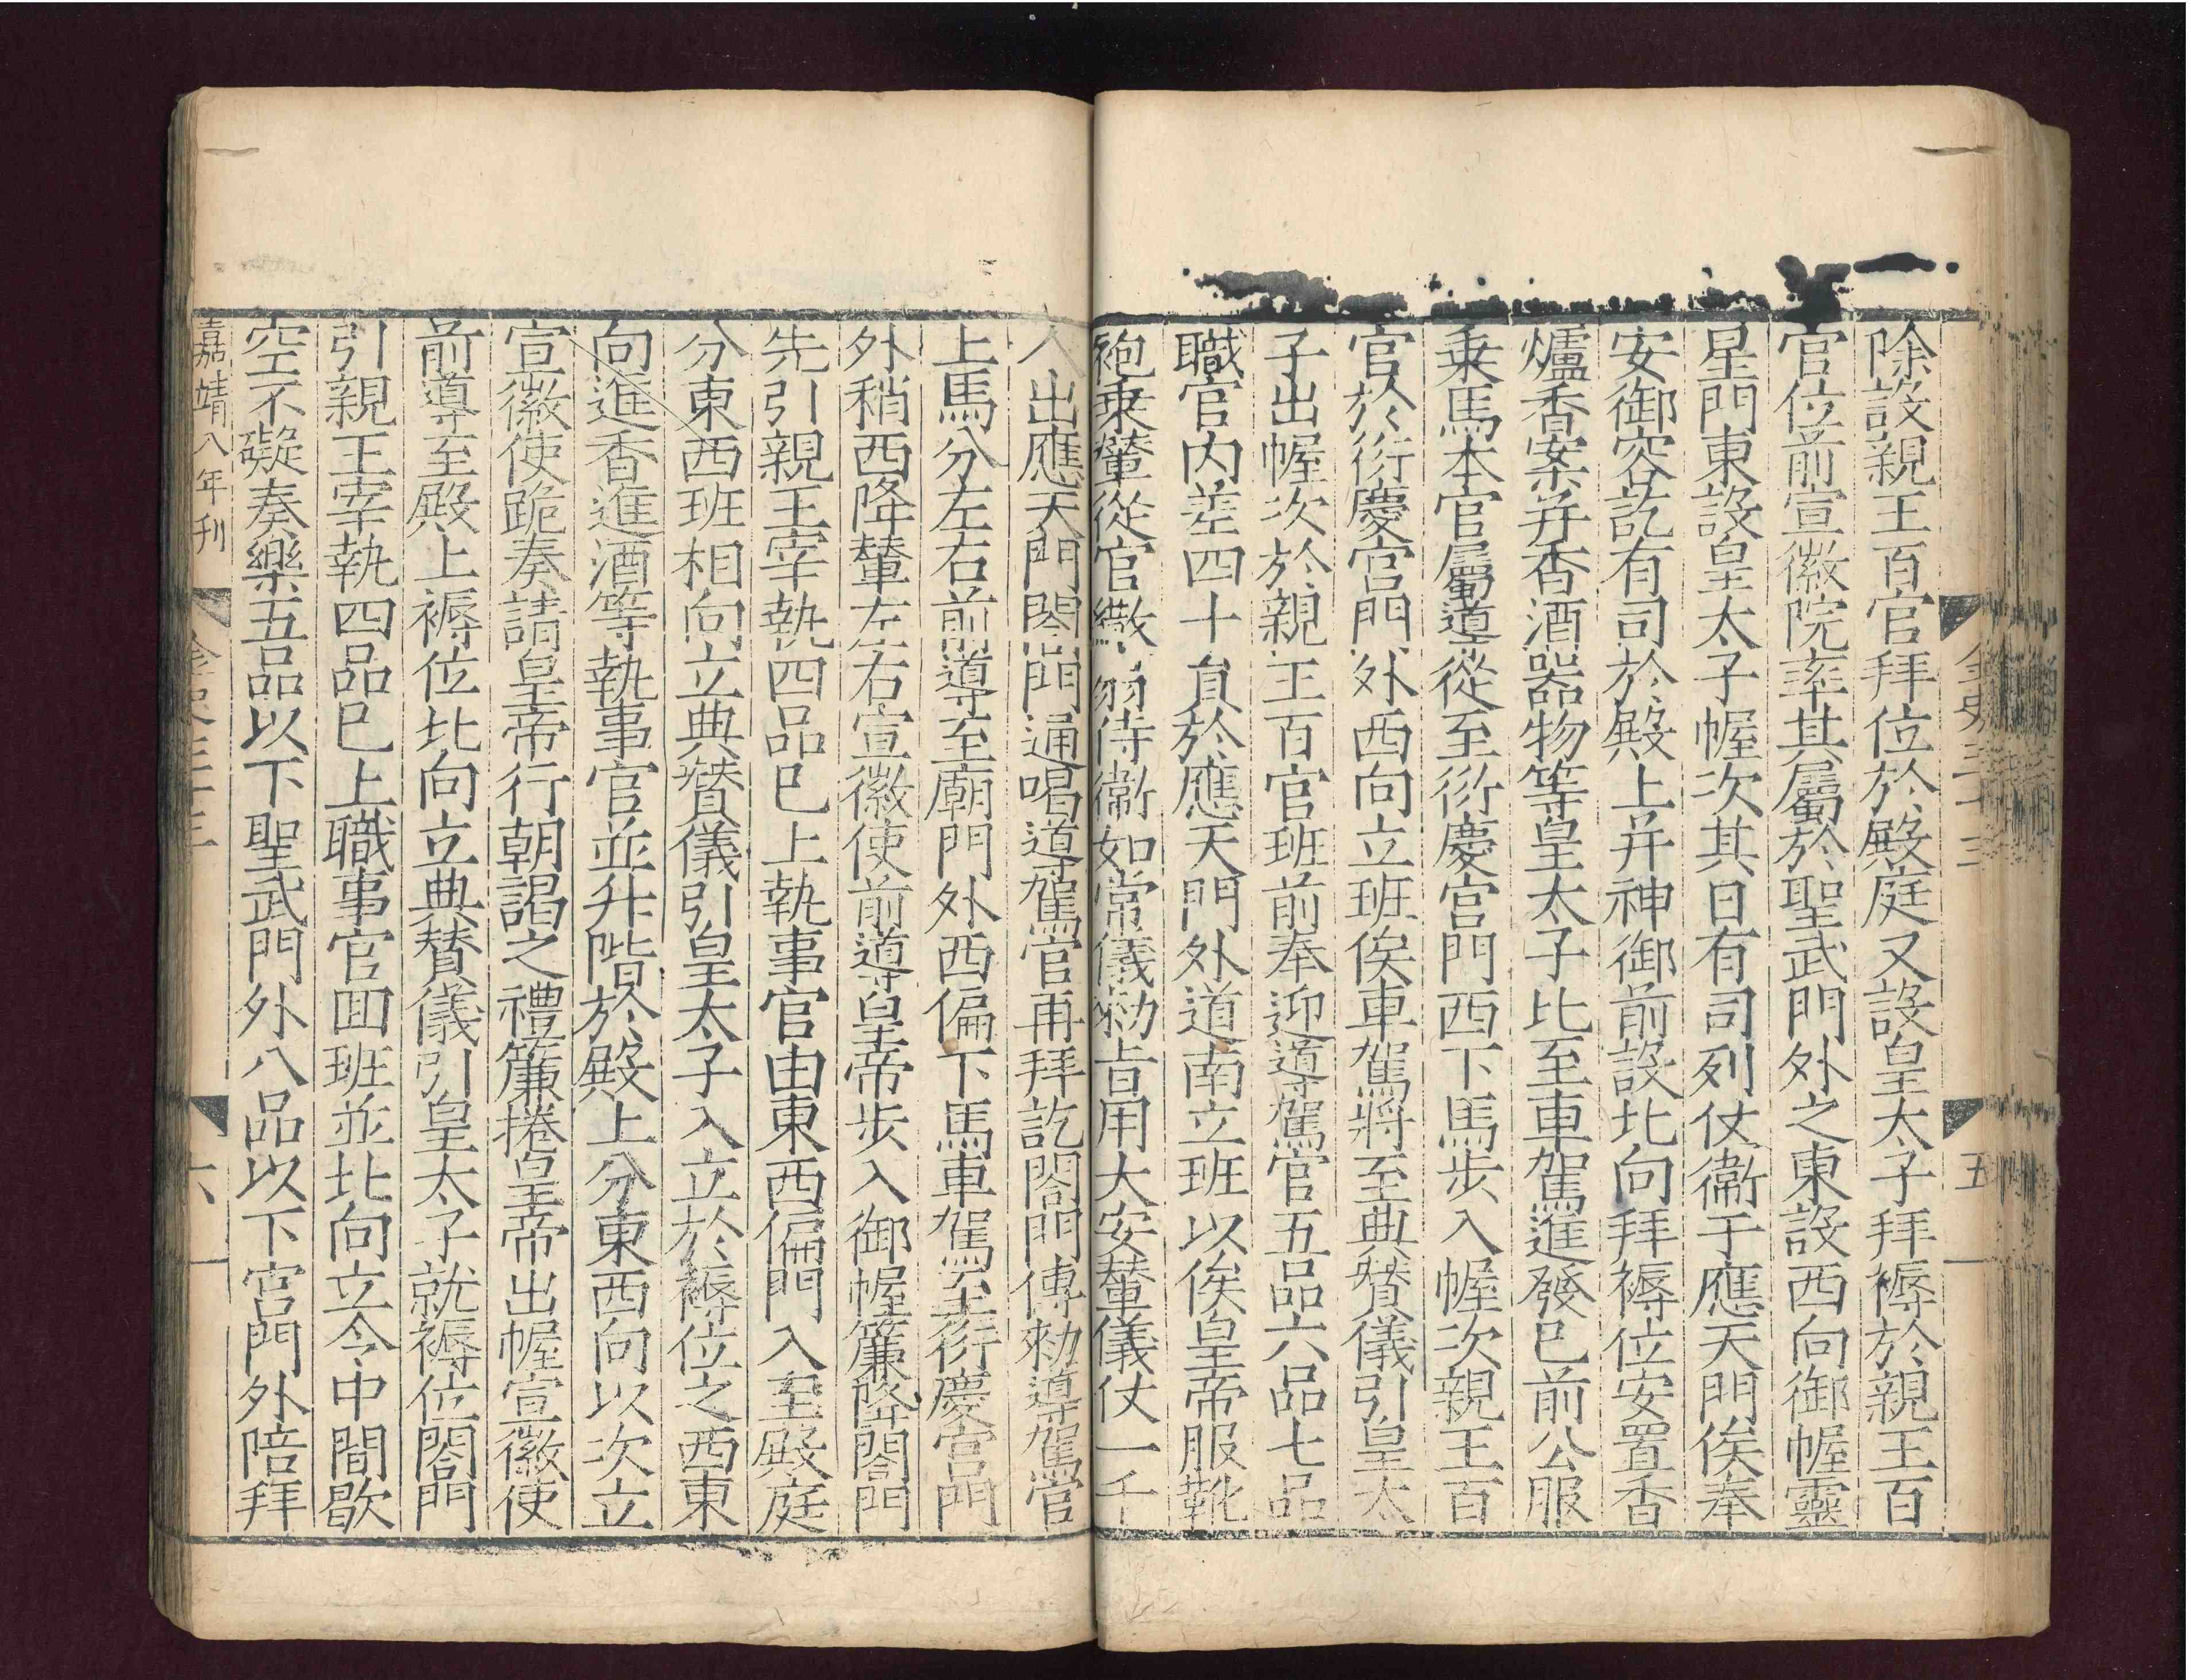 金史三十三
五
除設親王百官拜位於殿庭又設皇太子拜褥於親王百
官位前宣徽院率其屬於聖武門外之東設西向御幄靈
星門東設皇太子幄次其日有司列仗衞于應天門俟奉
安御容訖有司於殿上并神御前設北向拜褥位安置香
爐香案并香酒器物等皇太子比至車駕進發巳前公服
乗馬本官屬導從至衍慶宮門西下馬步入幄次親王百
官於衍慶宮門外西向立班俟車駕將至典賛儀引皇太
子出幄次於親王百官班前奉迎導駕官五品六品七品
職官内差四十貟於應天門外道南立班以俟皇帝服靴
袍乗輦從官繖扇侍衞如常儀勑旨用大安輦儀仗一千
人出應天門閤門通唱導駕官再拜訖閤門傳勑導駕官
上馬分左右前導至廟門外西偏下馬車駕至衍慶宮門
外稍西降輦左右宣徽使前導皇帝步入御幄簾降閤門
先引親王宰執四品巳上執事官由東西偏門入至殿庭
分東西班相向立典賛儀引皇太子入立於褥位之西東
向進香進酒等執事官並升階於殿上分東西向以次立
宣徽使跪奏請皇帝行朝謁之禮簾捲皇帝出幄宣徽使
前導至殿上褥位北向立典賛儀引皇太子就褥位閤門
引親王宰執四品巳上職事官回班並北向立令中間歇
空不礙奏樂五品以下聖武門外八品以下宮門外陪拜
嘉靖八年刊
金史三十三
六